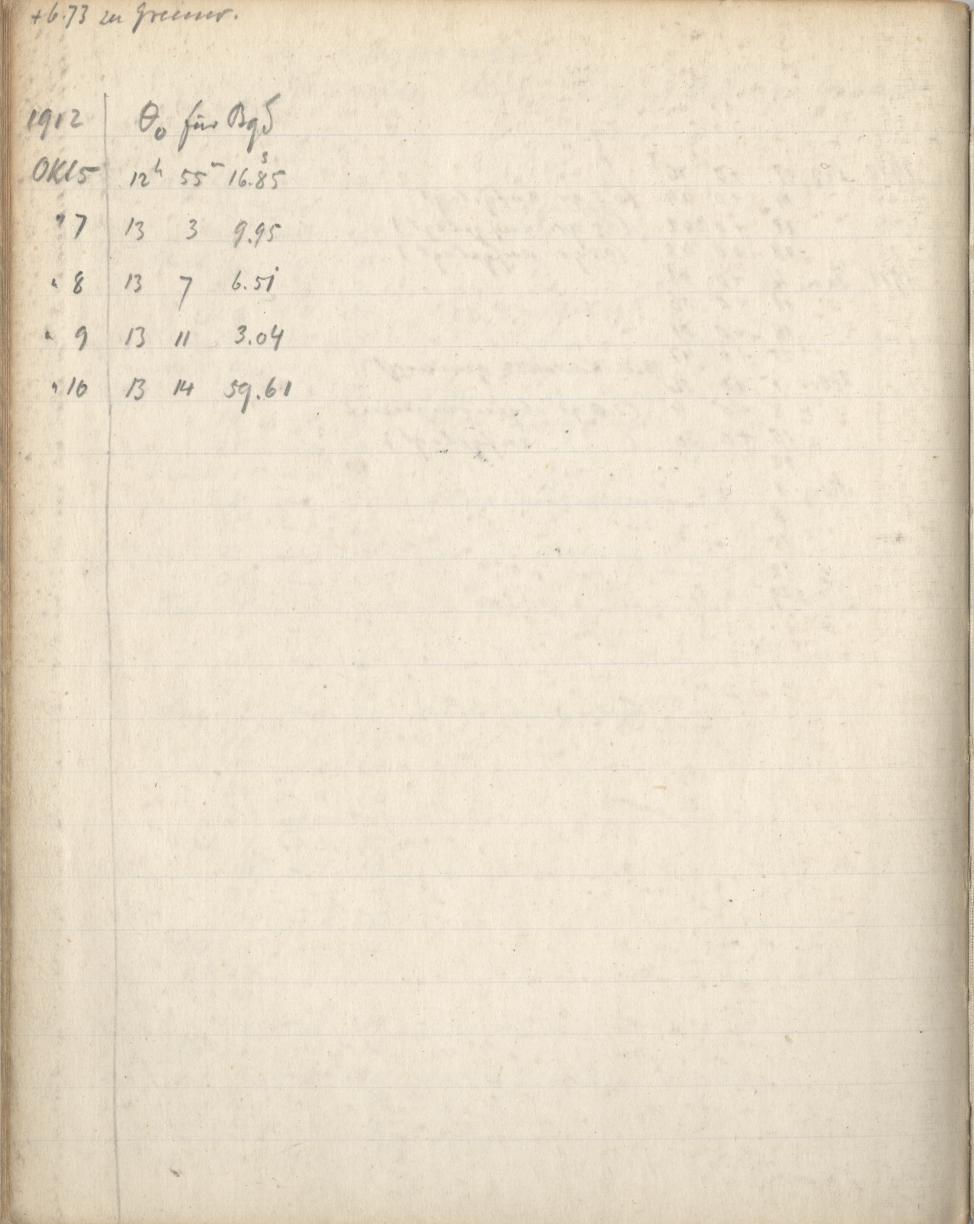 +6.73 zu Greenw.
1912 θ₀ für Bgd
Okt 5 12ʰ 55ᵐ 16.85ˢ
" 7 13 3 9.95
" 8 13 7 6.51
" 9 13 11 3.04
" 10 13 14 59.61